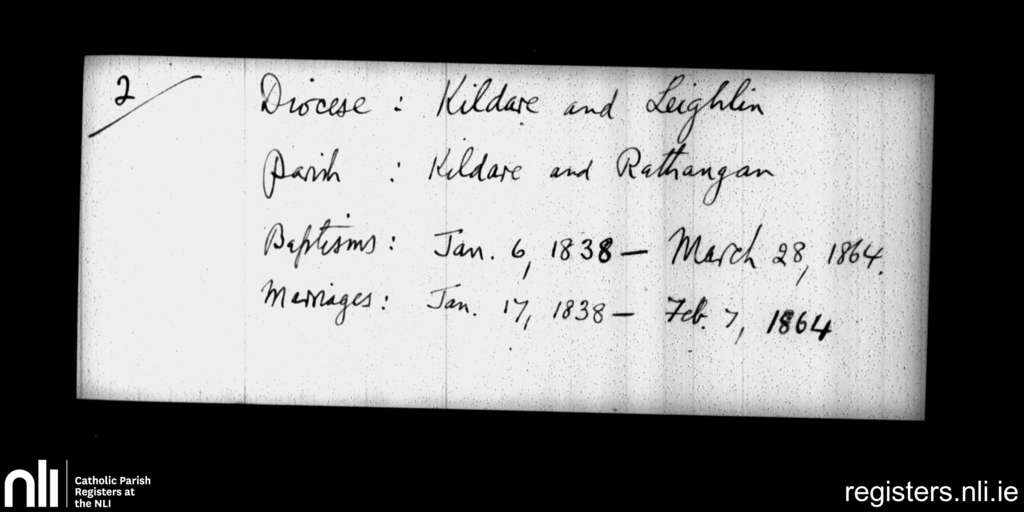 2
Diocese : Kildare and Leighlin
Parish : Kildare and Rathangan
Baptisms : Jan. 6, 1838 — March 28, 1864.
Marriages : Jan. 17, 1838 — Feb. 7, 1864
nli
Catholic Parish
Registers at
the NLI
registers.nli.ie